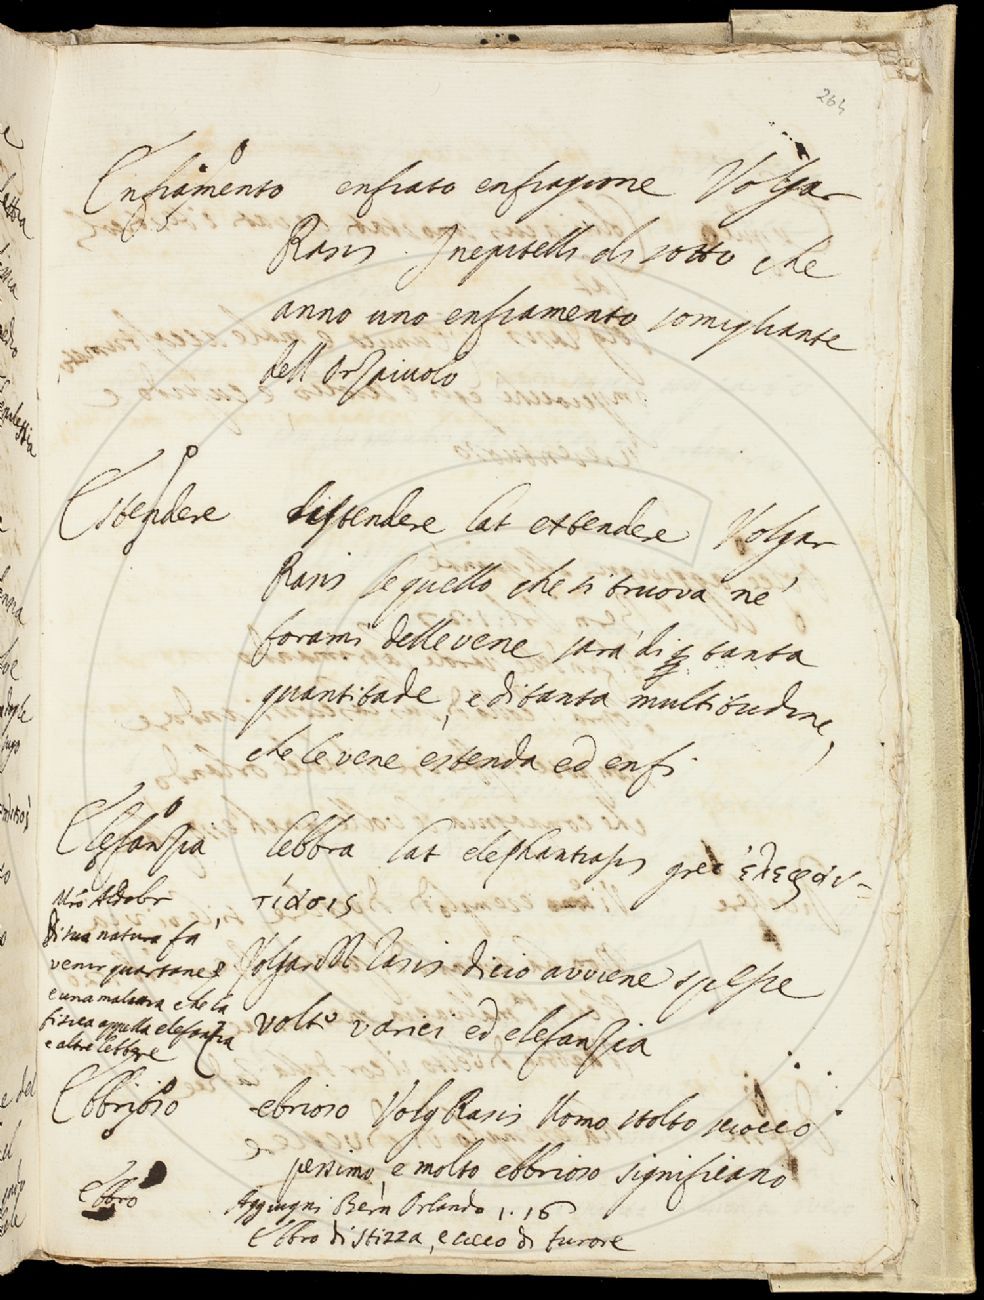 264
Enfiamento enfiato enfiagione Volgar
Rasis. Inepitelli di sotto che
anno uno enfiamento somigliante
dell Orzaiuolo
Estendere distendere lat extendere Volgar
Rasis Se quello che si truova ne'
forami delle vene sarà di tanta
quantitade, e di tanta multitudine,
che le vene estenda ed enfi
Elefanzia lebbra lat elephantiasis grec ἐλεφάν-
τίασις
Mrõ Aldobr
di sua natura fa'
venir quartane e
e una malizia che la
fisica appella elefanzia
e altre lebbre
Volgar Rasis dicio avviene spesse
volte varici ed elefanzia
Ebbrioso ebrioso Volg Rasis Uomo stolto sciocco
pessimo, e molto ebbrioso significano
Ebbro Aggiugni Bern Orlando 1. 16
Ebbro di stizza, e cieco di furore